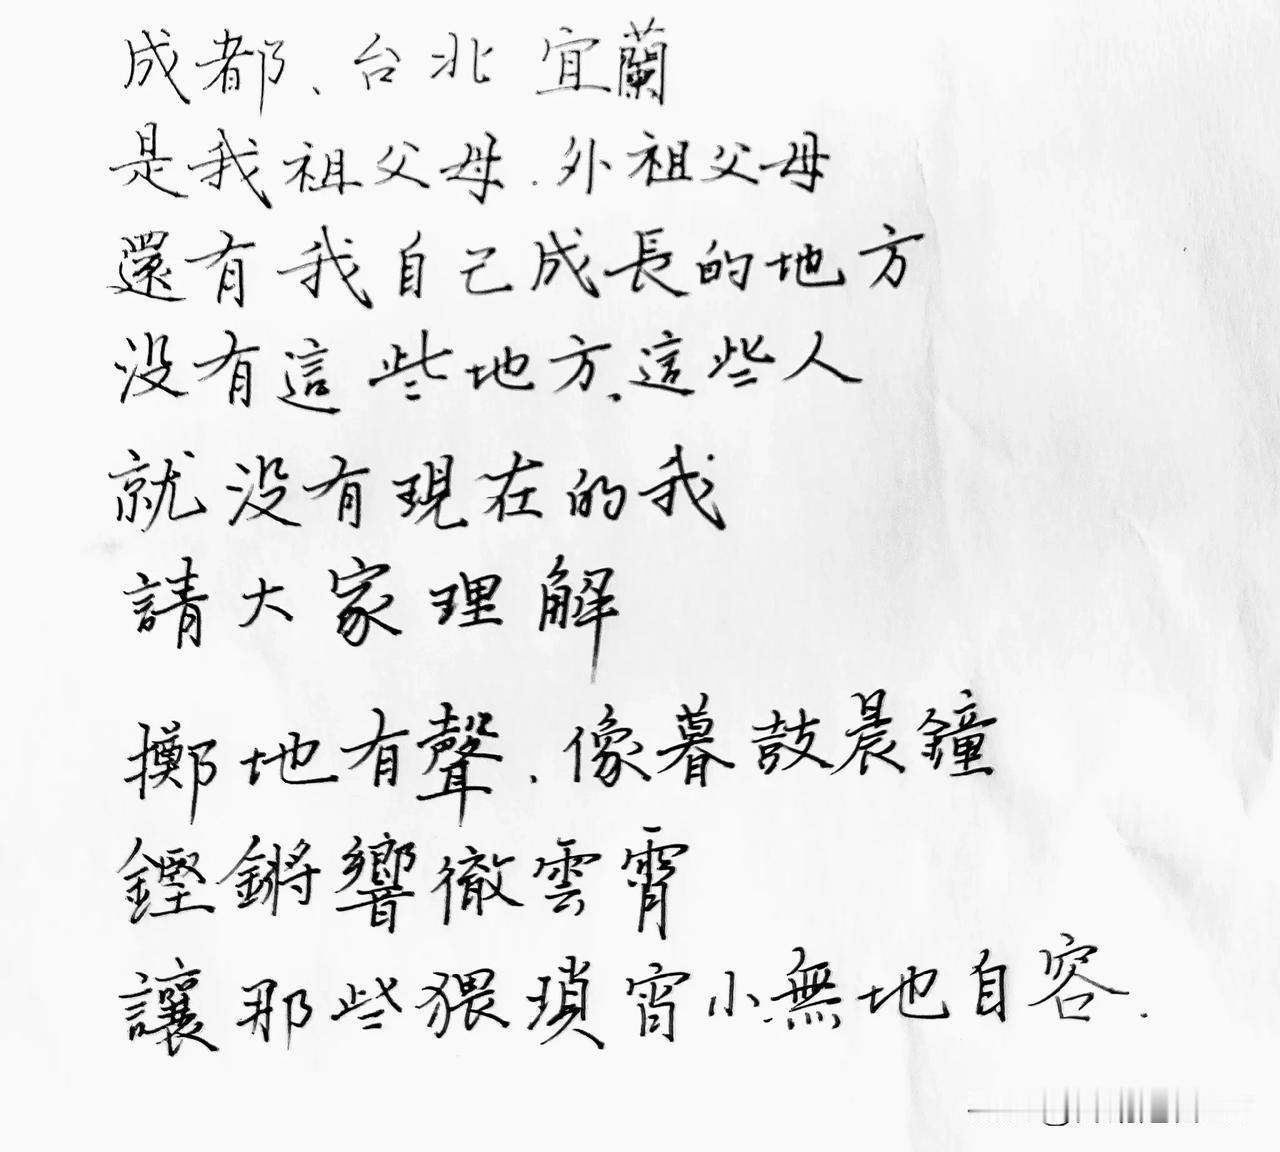 成都、台北 宜蘭
是我祖父母.外祖父母
還有我自己成長的地方
没有這些地方.這些人
就没有現在的我
請大家理解
擲地有聲.像暮鼓晨鐘
鏗鏘響徹雲霄
讓那些猥瑣宵小無地自容.